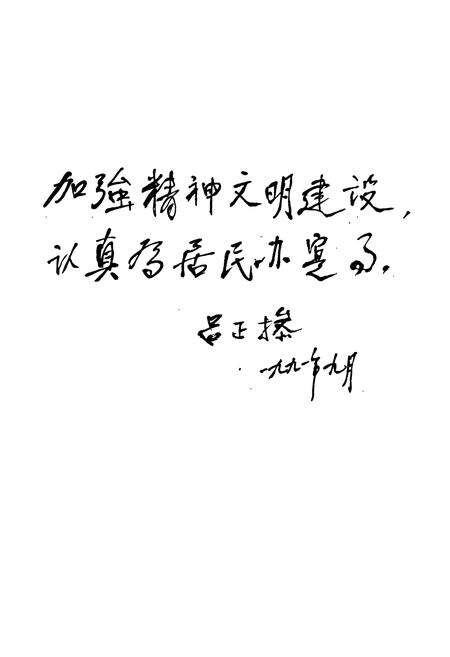 加強精神文明建设，
认真为居民办实事.
吕正操
一九九一年九月